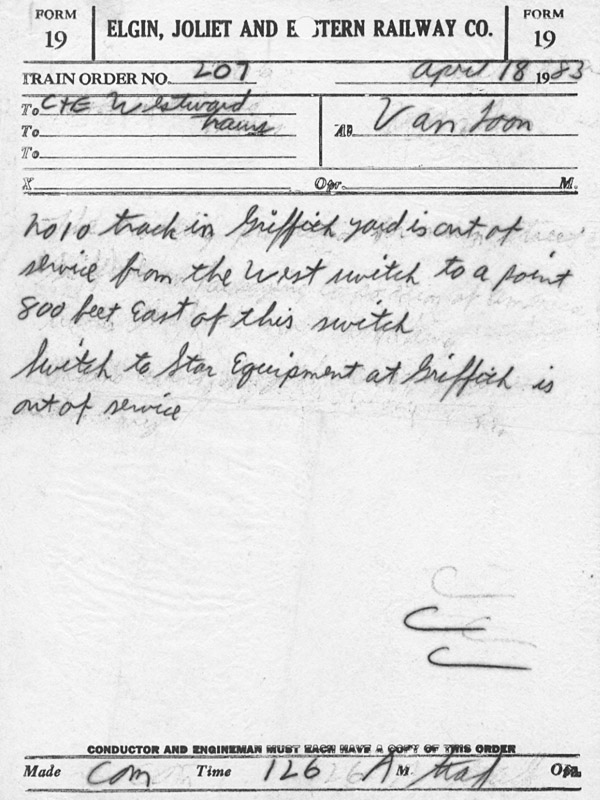 FORM 19
ELGIN, JOLIET AND E STERN RAILWAY CO.
FORM 19
TRAIN ORDER NO. 207 April 18 1983
To C+E Westward
To trains At Van Loon
To
X Opr. M.
No 10 track in Griffith yard is out of
service from the West switch to a point
800 feet East of this switch
Switch to Star Equipment at Griffith is
out of service
CONDUCTOR AND ENGINEMAN MUST EACH HAVE A COPY OF THIS ORDER
Made Com Time 126 A M. Opr.